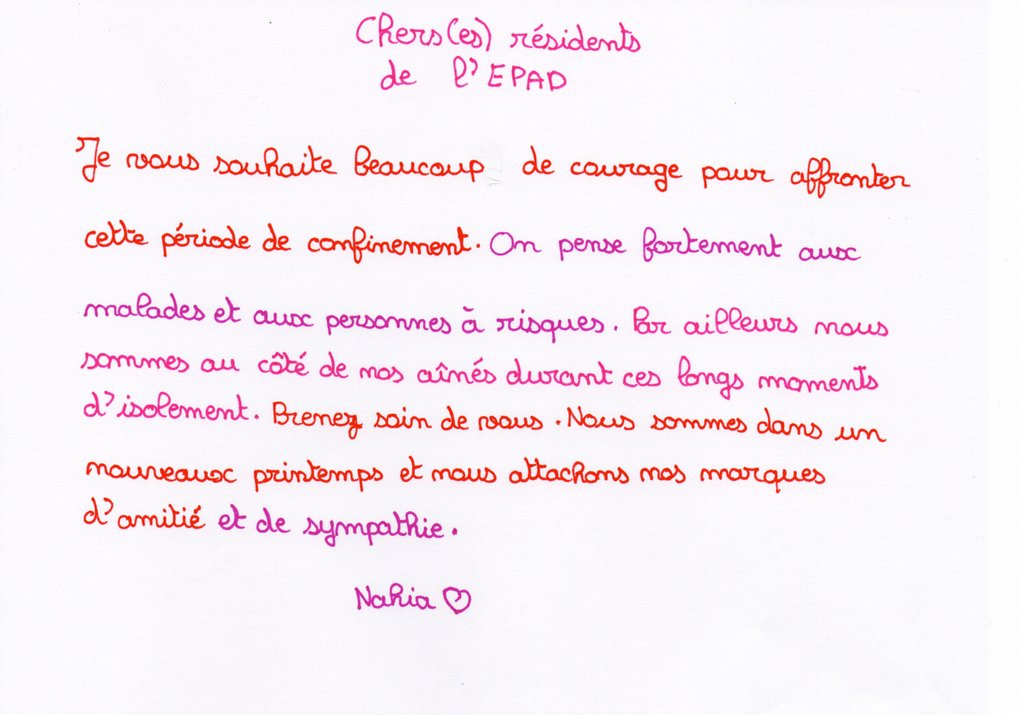 Chers(es) résidents
de l'EPAD
Je vous souhaite beaucoup de courage pour affronter
cette période de confinement. On pense fortement aux
malades et aux personnes à risques. Par ailleurs nous
sommes au côté de nos aînés durant ces longs moments
d'isolement. Prenez soin de vous. Nous sommes dans un
nouveaux printemps et nous attachons nos marques
d'amitié et de sympathie.
Nahia ♡